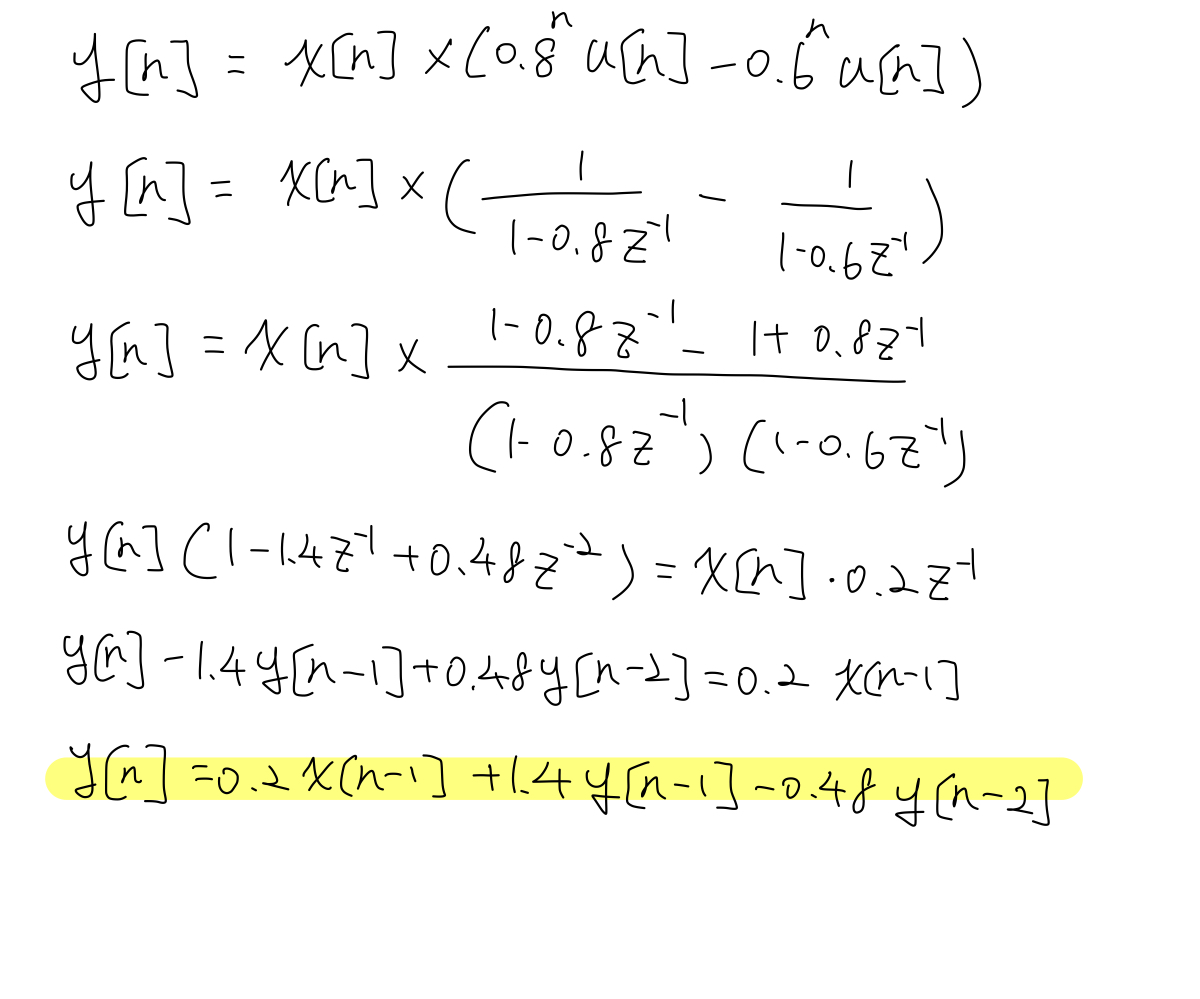 y[n] = x[n] × (0.8^n u[n] - 0.6^n u[n])
y[n] = x[n] × (1/(1-0.8z^-1) - 1/(1-0.6z^-1))
y[n] = x[n] × (1-0.8z^-1 - 1+0.8z^-1)/((1-0.8z^-1)(1-0.6z^-1))
y[n](1-1.4z^-1+0.48z^-2) = x[n]·0.2z^-1
y[n]-1.4y[n-1]+0.48y[n-2]=0.2 x[n-1]
y[n]=0.2x[n-1]+1.4y[n-1]-0.48y[n-2]